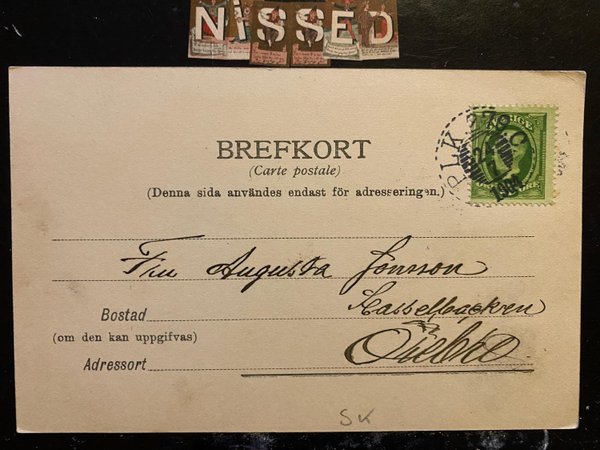 NiSSED
BREFKORT
(Carte postale)
(Denna sida användes endast för adresseringen.)
Fru Augusta Jonsson
Bostad
Hasselbacken
(om den kan uppgifvas)
Örebro
Adressort
SK
PLK
SVERIGE
ÖRE